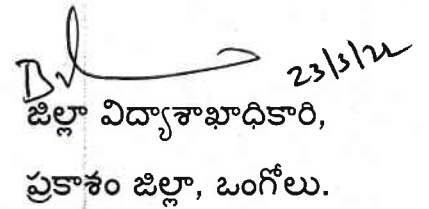 23/3/22
జిల్లా విద్యాశాఖాధికారి,
ప్రకాశం జిల్లా, ఒంగోలు.